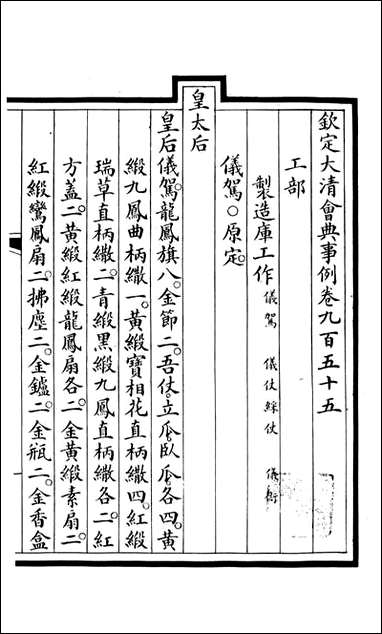 欽定大清會典事例卷九百五十五
工部
製造庫工作 儀駕 儀仗綵仗 儀衞
儀駕○原定
皇太后
皇后儀駕龍鳳旗八金節二吾仗立瓜臥瓜各四黃
緞九鳳曲柄繖一黃緞寶相花直柄繖四紅緞
瑞草直柄繖二青緞黑緞九鳳直柄繖各二紅
方蓋二黃緞紅緞龍鳳扇各二金黃緞素扇二
紅緞鸞鳳扇二拂塵二金鑪二金瓶二金香盒